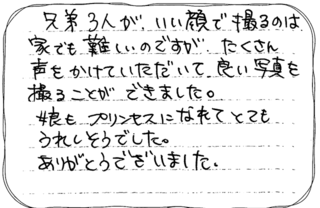 兄弟3人が、いい顔で撮るのは
家でも難しいのですが たくさん
声をかけていただいて 良い写真を
撮ることが できました。
娘も プリンセスになれて とても
うれしそうでした。
ありがとうございました.